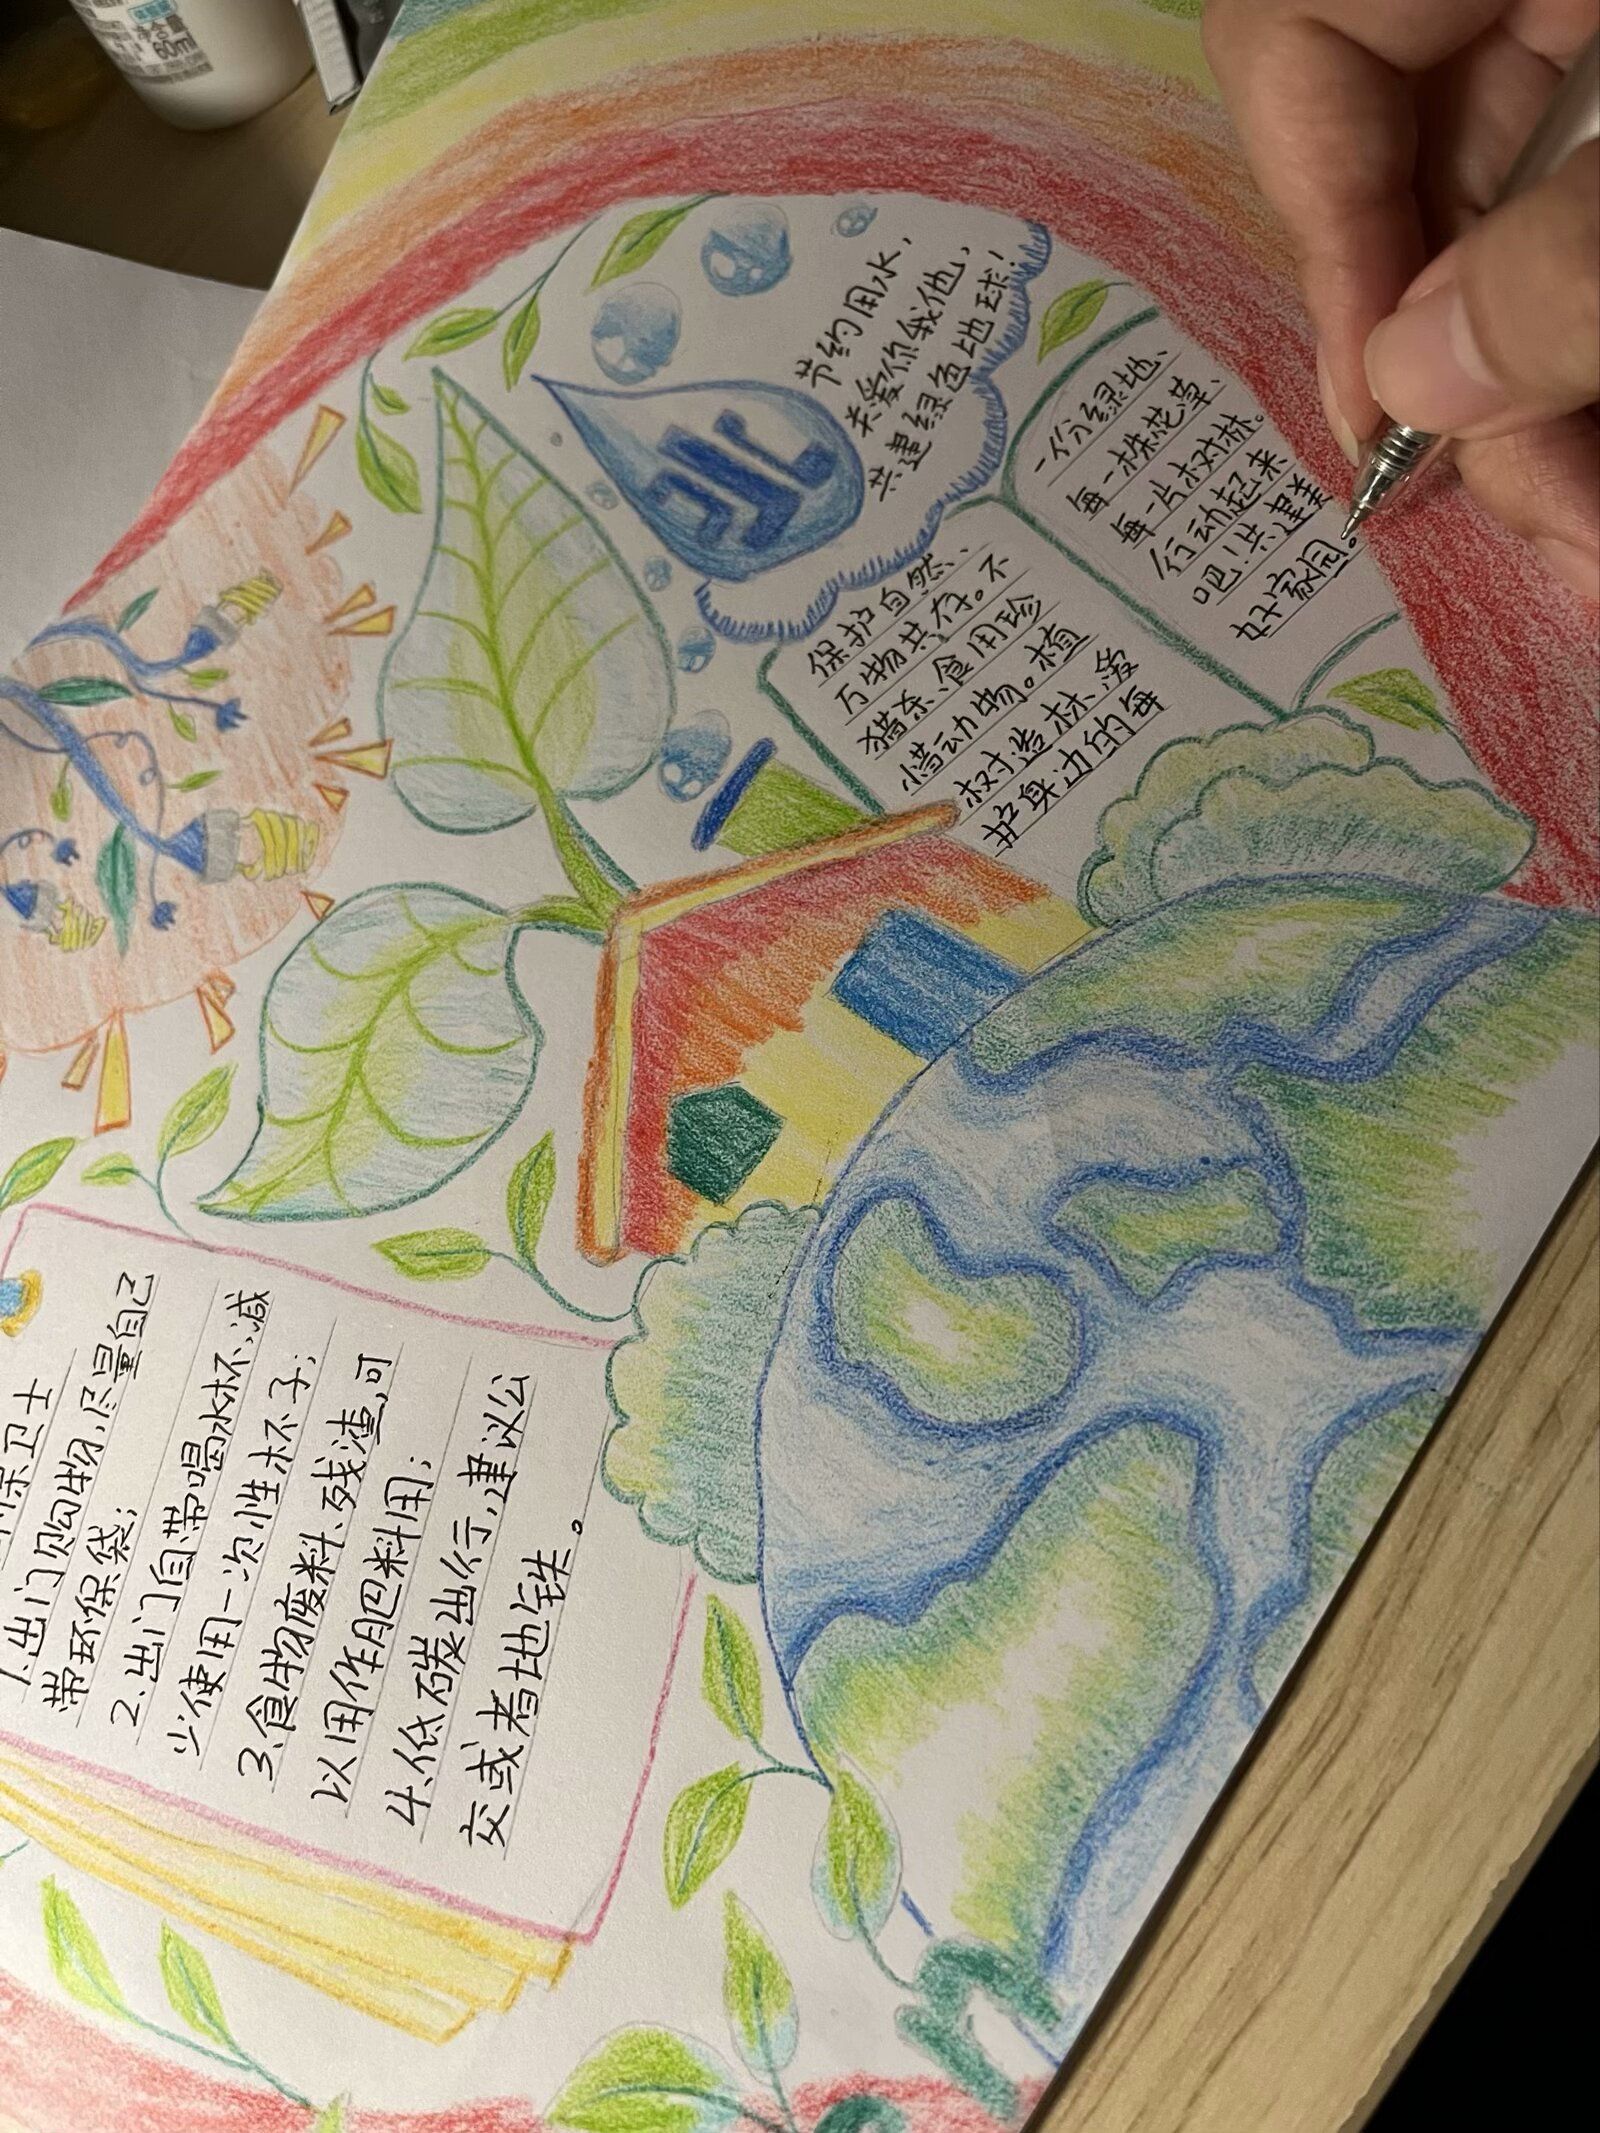 节约用水，
关爱你我他，
共建绿色地球！
保护自然、
万物共存。不
猎杀、食用珍
惜动物。植
树造林、爱
护身边的每
一份绿地、
每一株花草、
每一片树林。
行动起来
吧！共建美
好家园。
保卫士
1.出门购物，尽量自己
带环保袋；
2.出门自带喝水杯，减
少使用一次性杯子；
3.食物废料、残渣，可
以用作肥料用；
4.低碳出行，建议公
交或者地铁。
60ml